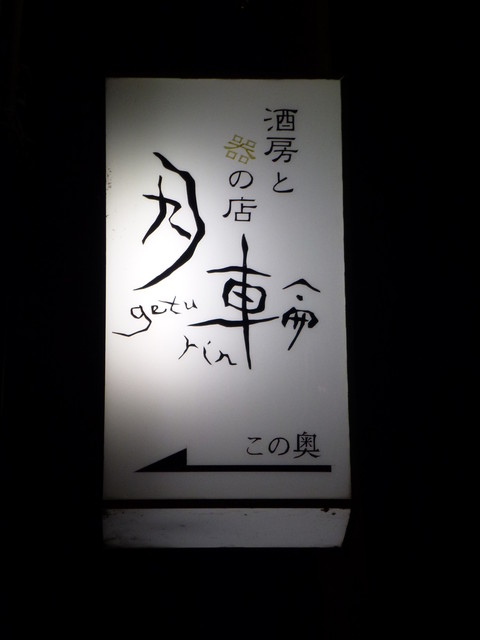 酒房と
器の店
月輪
getu
rin
この奥